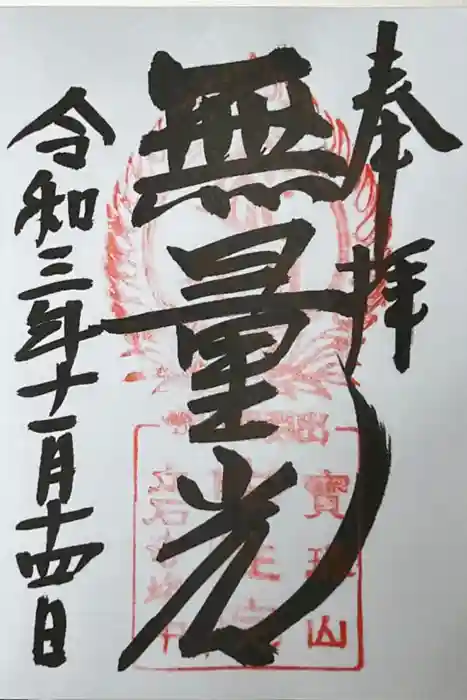 奉拝
無量光
令和三年十一月十四日
寶珠山